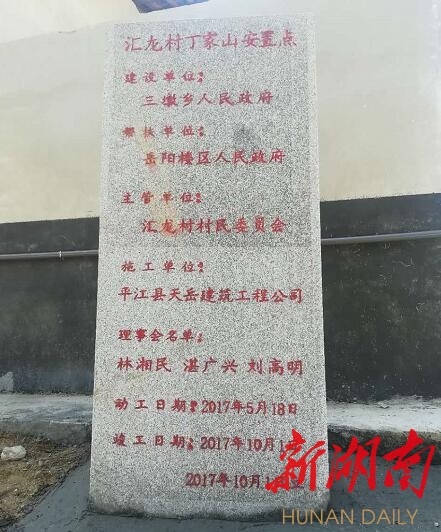 汇龙村丁家山安置点
建设单位:
三墩乡人民政府
帮扶单位:
岳阳楼区人民政府
主管单位:
汇龙村村民委员会
施工单位:
平江县天岳建筑工程公司
理事会名单:
林湘民 湛广兴 刘高明
动工日期:2017年5月18日
竣工日期:2017年10月1
2017年10月1
新湖南
HUNAN DAILY